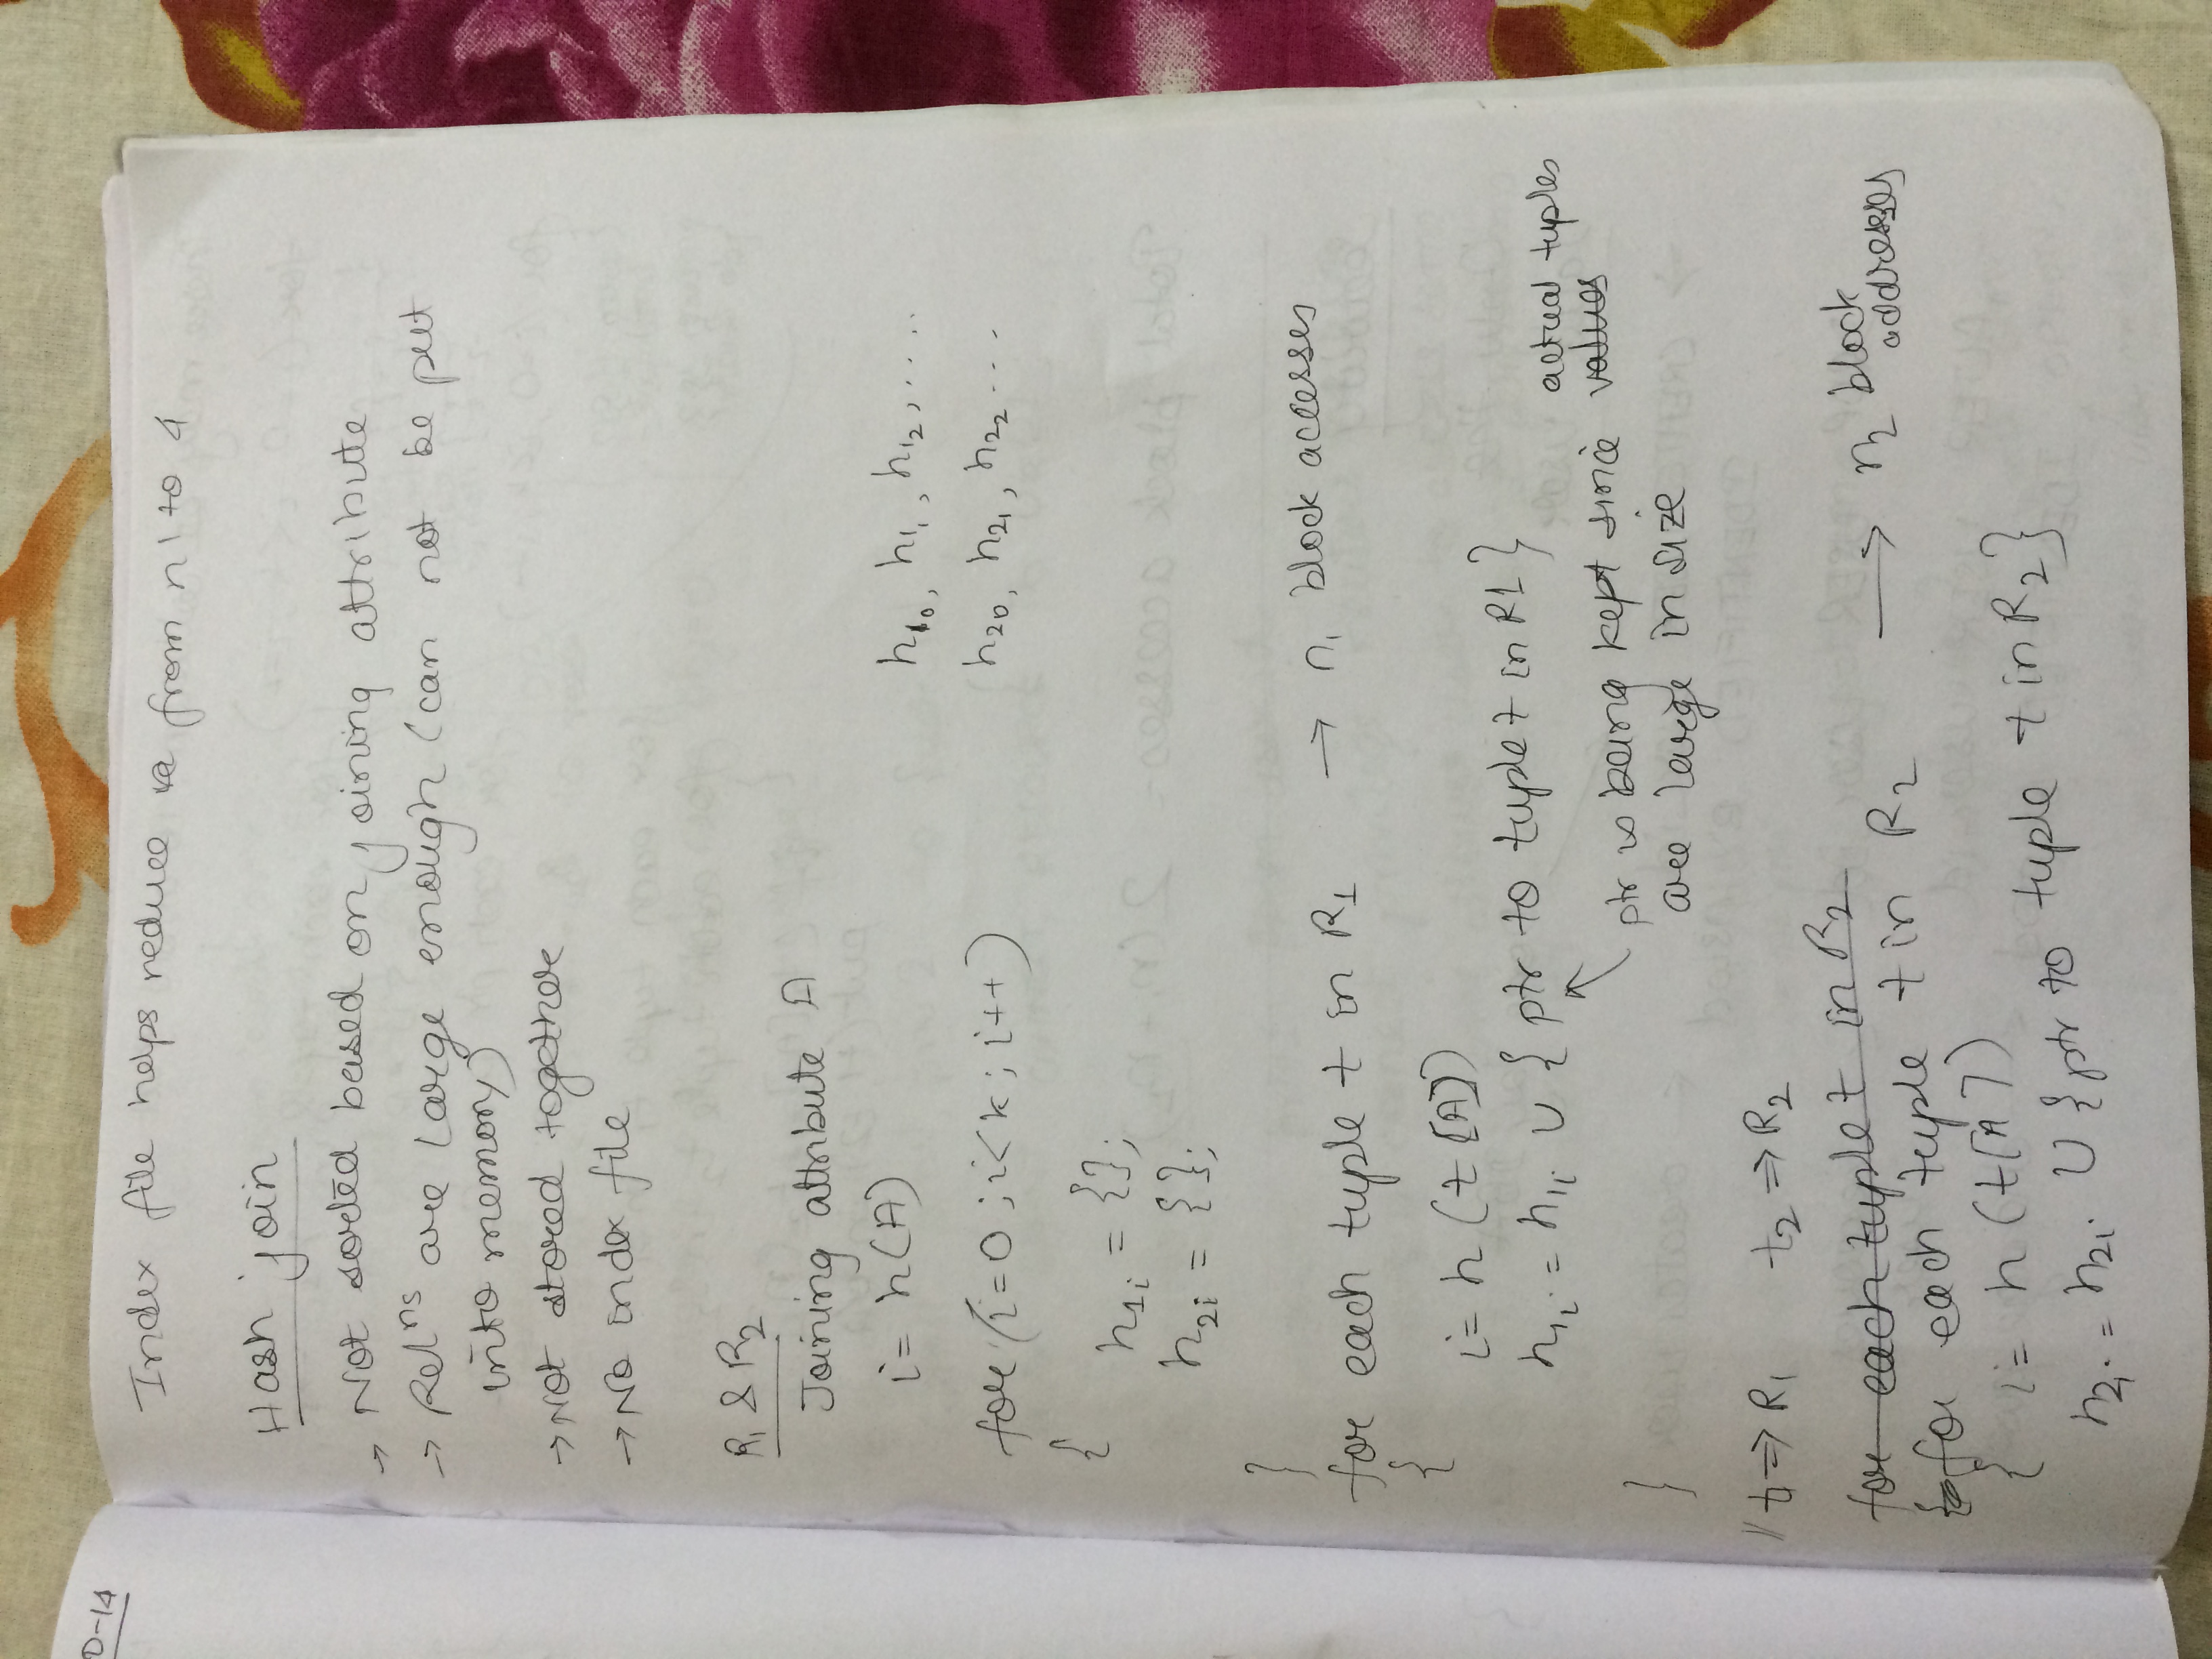 D-14
Index file helps reduce from n1 to 4
Hash join
→ Not sorted based on joining attribute
→ Relns are large enough (can not be put
into memory)
→ Not stored together
→ No index file
R1 & R2
Joining attribute A
i = h(A)
h10, h11, h12, ....
for (i=0 ; i<k ; i++)
h20, h21, h22 ...
{
h1i = {};
h2i = {};
}
for each tuple t in R1 → n1 block accesses
{
i = h (t[A])
h1i = h1i U { ptr to tuple t in R1 }
actual tuples
ptr is being kept since values
are large in size
}
// t1 ⇒ R1 t2 ⇒ R2
for each tuple t in R2
for each tuple t in R2 → n2 block
addresses
{ i = h (t[A])
h2i = h2i U {ptr to tuple t in R2}